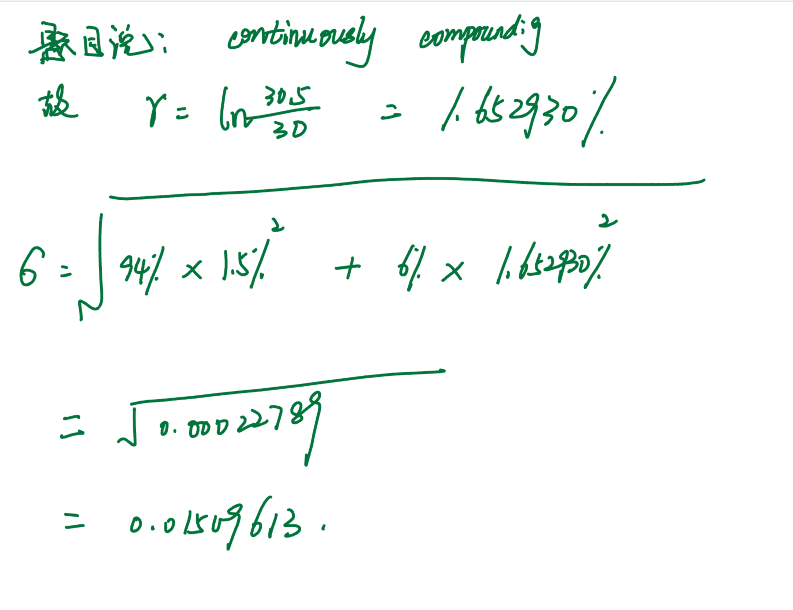 题目说: continuously compounding
故 r = ln 30.5/30 = 1.652930%
σ = √(94% × 1.5%² + 6% × 1.652930%²)
= √0.00022789
= 0.01509613.